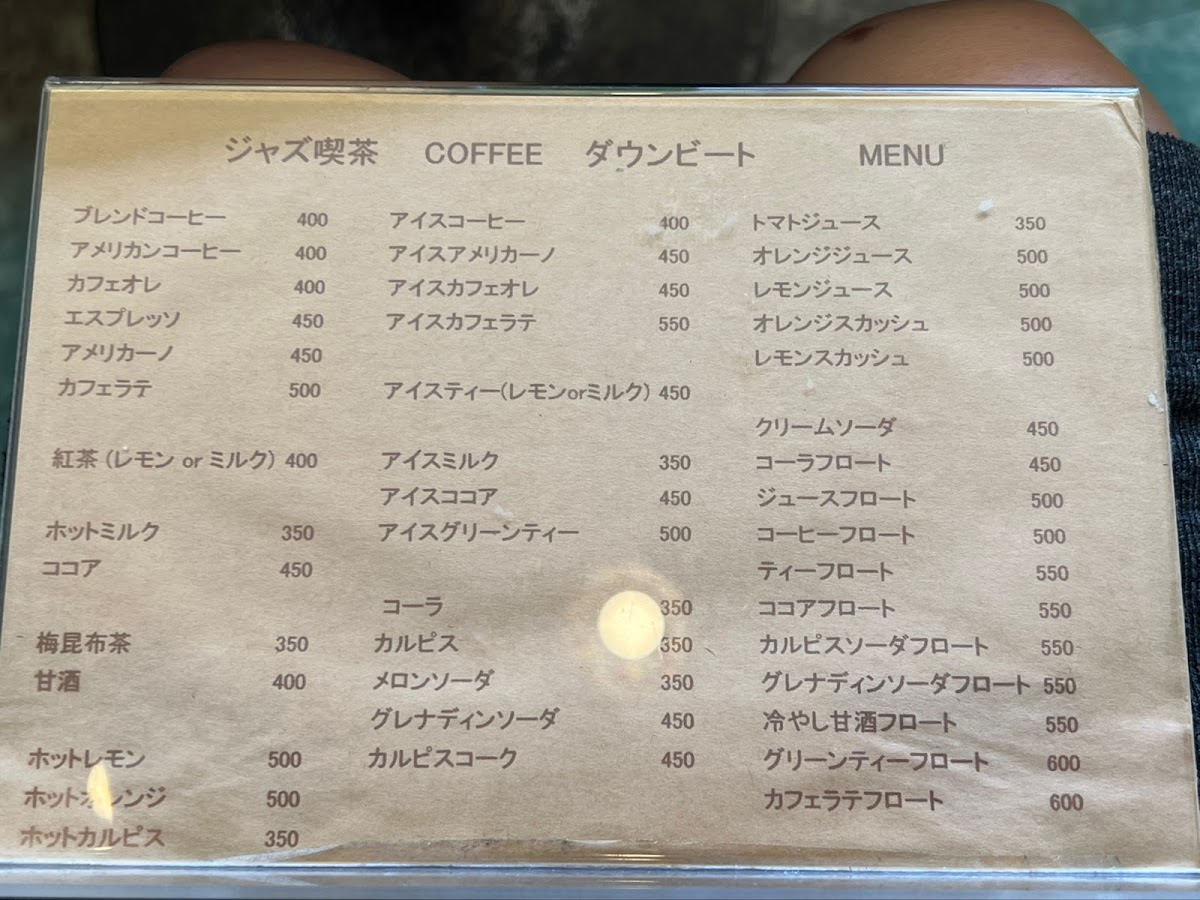 ジャズ喫茶 COFFEE ダウンビート MENU
ブレンドコーヒー 400
アメリカンコーヒー 400
カフェオレ 400
エスプレッソ 450
アメリカーノ 450
カフェラテ 500
紅茶 (レモン or ミルク) 400
ホットミルク 350
ココア 450
梅昆布茶 350
甘酒 400
ホットレモン 500
ホットオレンジ 500
ホットカルピス 350
アイスコーヒー 400
アイスアメリカーノ 450
アイスカフェオレ 450
アイスカフェラテ 550
アイスティー(レモンorミルク) 450
アイスミルク 350
アイスココア 450
アイスグリーンティー 500
コーラ 350
カルピス 350
メロンソーダ 350
グレナディンソーダ 450
カルピスコーク 450
トマトジュース 350
オレンジジュース 500
レモンジュース 500
オレンジスカッシュ 500
レモンスカッシュ 500
クリームソーダ 450
コーラフロート 450
ジュースフロート 500
コーヒーフロート 500
ティーフロート 550
ココアフロート 550
カルピスソーダフロート 550
グレナディンソーダフロート 550
冷やし甘酒フロート 550
グリーンティーフロート 600
カフェラテフロート 600